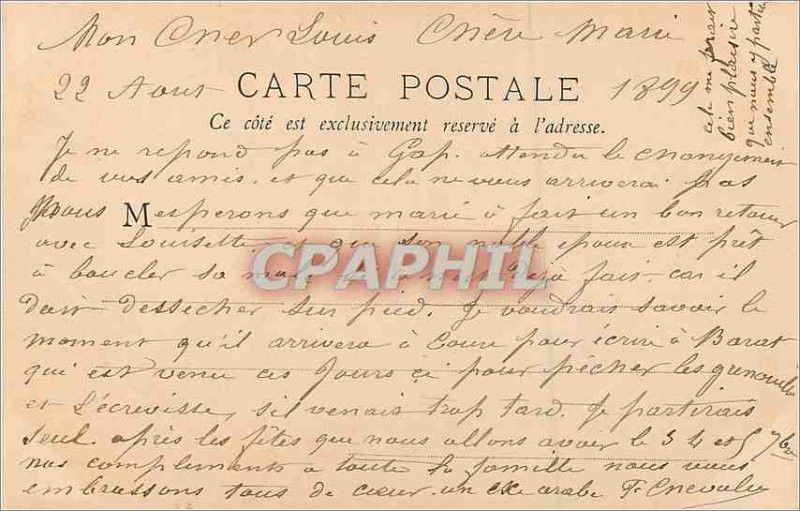 Mon Cher Louis Chère Marie
22 Aout CARTE POSTALE 1899
Ce côté est exclusivement reservé à l'adresse.
Je ne repond pas à Gap. attendu le changement
de vos amis. et que cela ne vous arrivera pas
Nous M esperons que marie à fait un bon retour
avec Louisette et que son noble epoux est prêt
à boucler sa malle si n'est Dejà fait. car il
Doit dessecher sur pied. Je voudrais savoir le
moment qu'il arrivera à pour écrire à Barat
qui est venu ces Jours ci pour pécher les grenouilles
et L'écrevisse, s'il venais trop tard. Je partirais
seul. après les fêtes que nous allons avoir le 3 4 et 5 7bre
nos compliments à toute la famille nous vous
embrassons tous de cœur. un ex arabe F. Chevalier
cela me ferait
bien plaisir
que nous y partions
ensemble
CPAPHIL